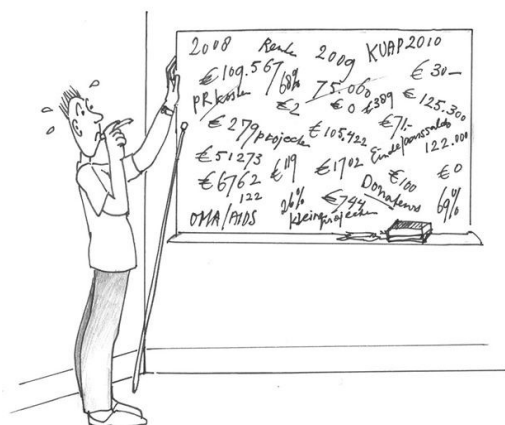 2008 Rente 2009 KUAP2010
€109.567 68% 75.060 €30—
PR kosten €2 €0 €389 €125.300
€279 projecten €105.422 €71,- Eindejaarssaldo
€51273 €119 €1702 122.000
€6762 €100 €0
122 26% €744 Donateurs 69%
OMA/AIDS Kleinprojecten